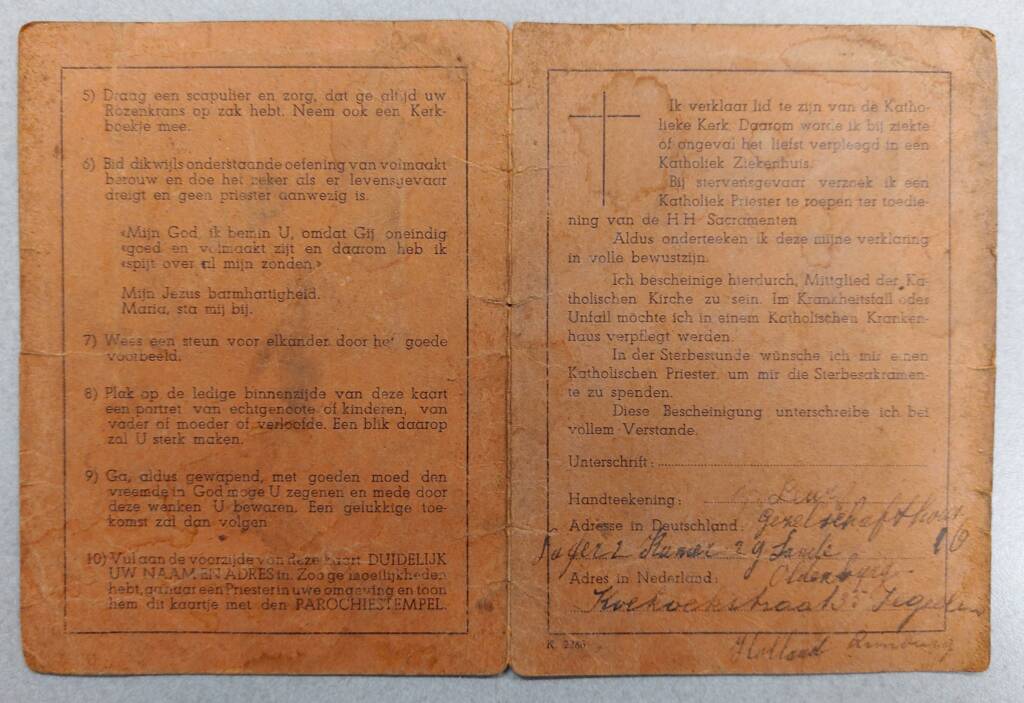 5) Draag een scapulier en zorg, dat ge altijd uw
Rozenkrans op zak hebt. Neem ook een Kerk-
boekje mee.
6) Bid dikwijls onderstaande oefening van volmaakt
berouw en doe het zeker als er levensgevaar
dreigt en geen priester aanwezig is.
«Mijn God, ik bemin U, omdat Gij oneindig
«goed en volmaakt zijt en daarom heb ik
«spijt over al mijn zonden.»
Mijn Jezus barmhartigheid.
Maria, sta mij bij.
7) Wees een steun voor elkander door het goede
voorbeeld.
8) Plak op de ledige binnenzijde van deze kaart
een portret van echtgenoote of kinderen, van
vader of moeder of verloofde. Een blik daarop
zal U sterk maken.
9) Ga, aldus gewapend, met goeden moed den
vreemde in God moge U zegenen en mede door
deze wenken U bewaren. Een gelukkige toe-
komst zal dan volgen
10) Vul aan de voorzijde van deze kaart DUIDELIJK
UW NAAM EN ADRES in. Zoo ge moeilijkheden
hebt, ga naar een Priester in uwe omgeving en toon
hem dit kaartje met den PAROCHIESTEMPEL.
Ik verklaar lid te zijn van de Katho-
lieke Kerk. Daarom worde ik bij ziekte
of ongeval het liefst verpleegd in een
Katholiek Ziekenhuis.
Bij stervensgevaar verzoek ik een
Katholiek Priester te roepen ter toedie-
ning van de H.H. Sacramenten
Aldus onderteeken ik deze mijne verklaring
in volle bewustzijn.
Ich bescheinige hierdurch, Mittglied der Ka-
tholischen Kirche zu sein. Im Krankheitsfall oder
Unfall möchte ich in einem Katholischen Kranken-
haus verpflegt werden.
In der Sterbestunde wünsche ich mir einen
Katholischen Priester, um mir die Sterbesakramen-
te zu spenden.
Diese Bescheinigung unterschreibe ich bei
vollem Verstande.
Unterschrift:
Handteekening:
Adresse in Deutschland: Gezelschafthous
Kamer
Adres in Nederland: Oldenburg
Koekoekstraat 35
K. 2286 Holland